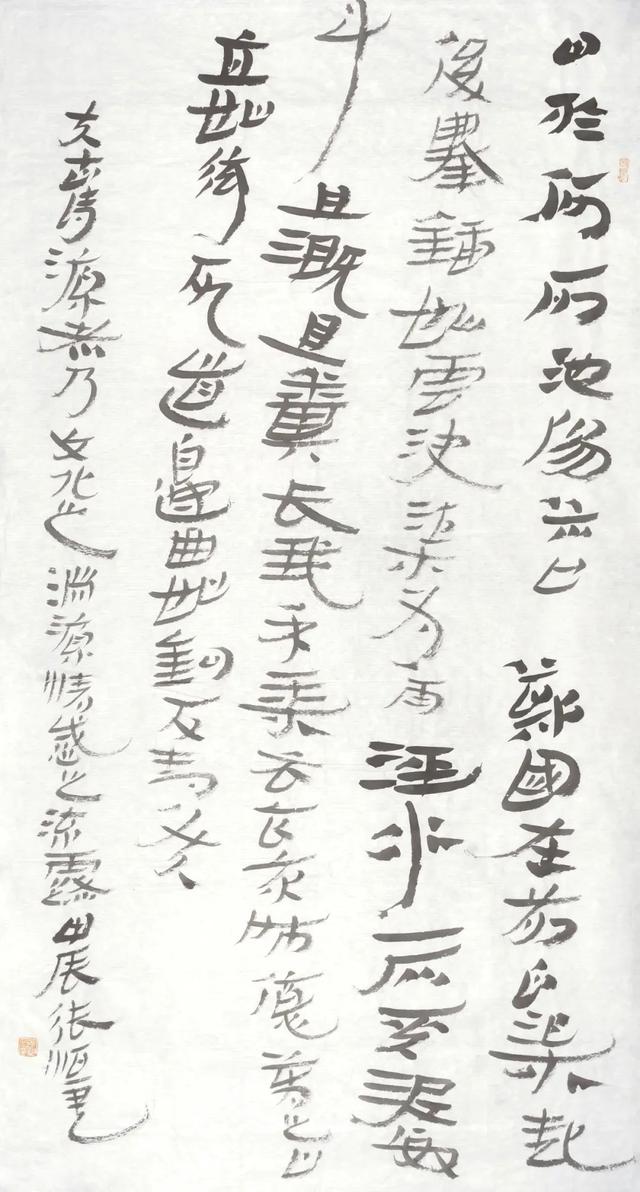 田於何所池陽谷口鄭國在前白渠起
後舉鍤如雲決渠為雨涇水一石其泥數
斗且溉且糞長我禾黍衣食京師億萬之口
直如弦死道邊曲如鉤反封侯
古詩源者乃文化之淵源情感之流露甲辰張順